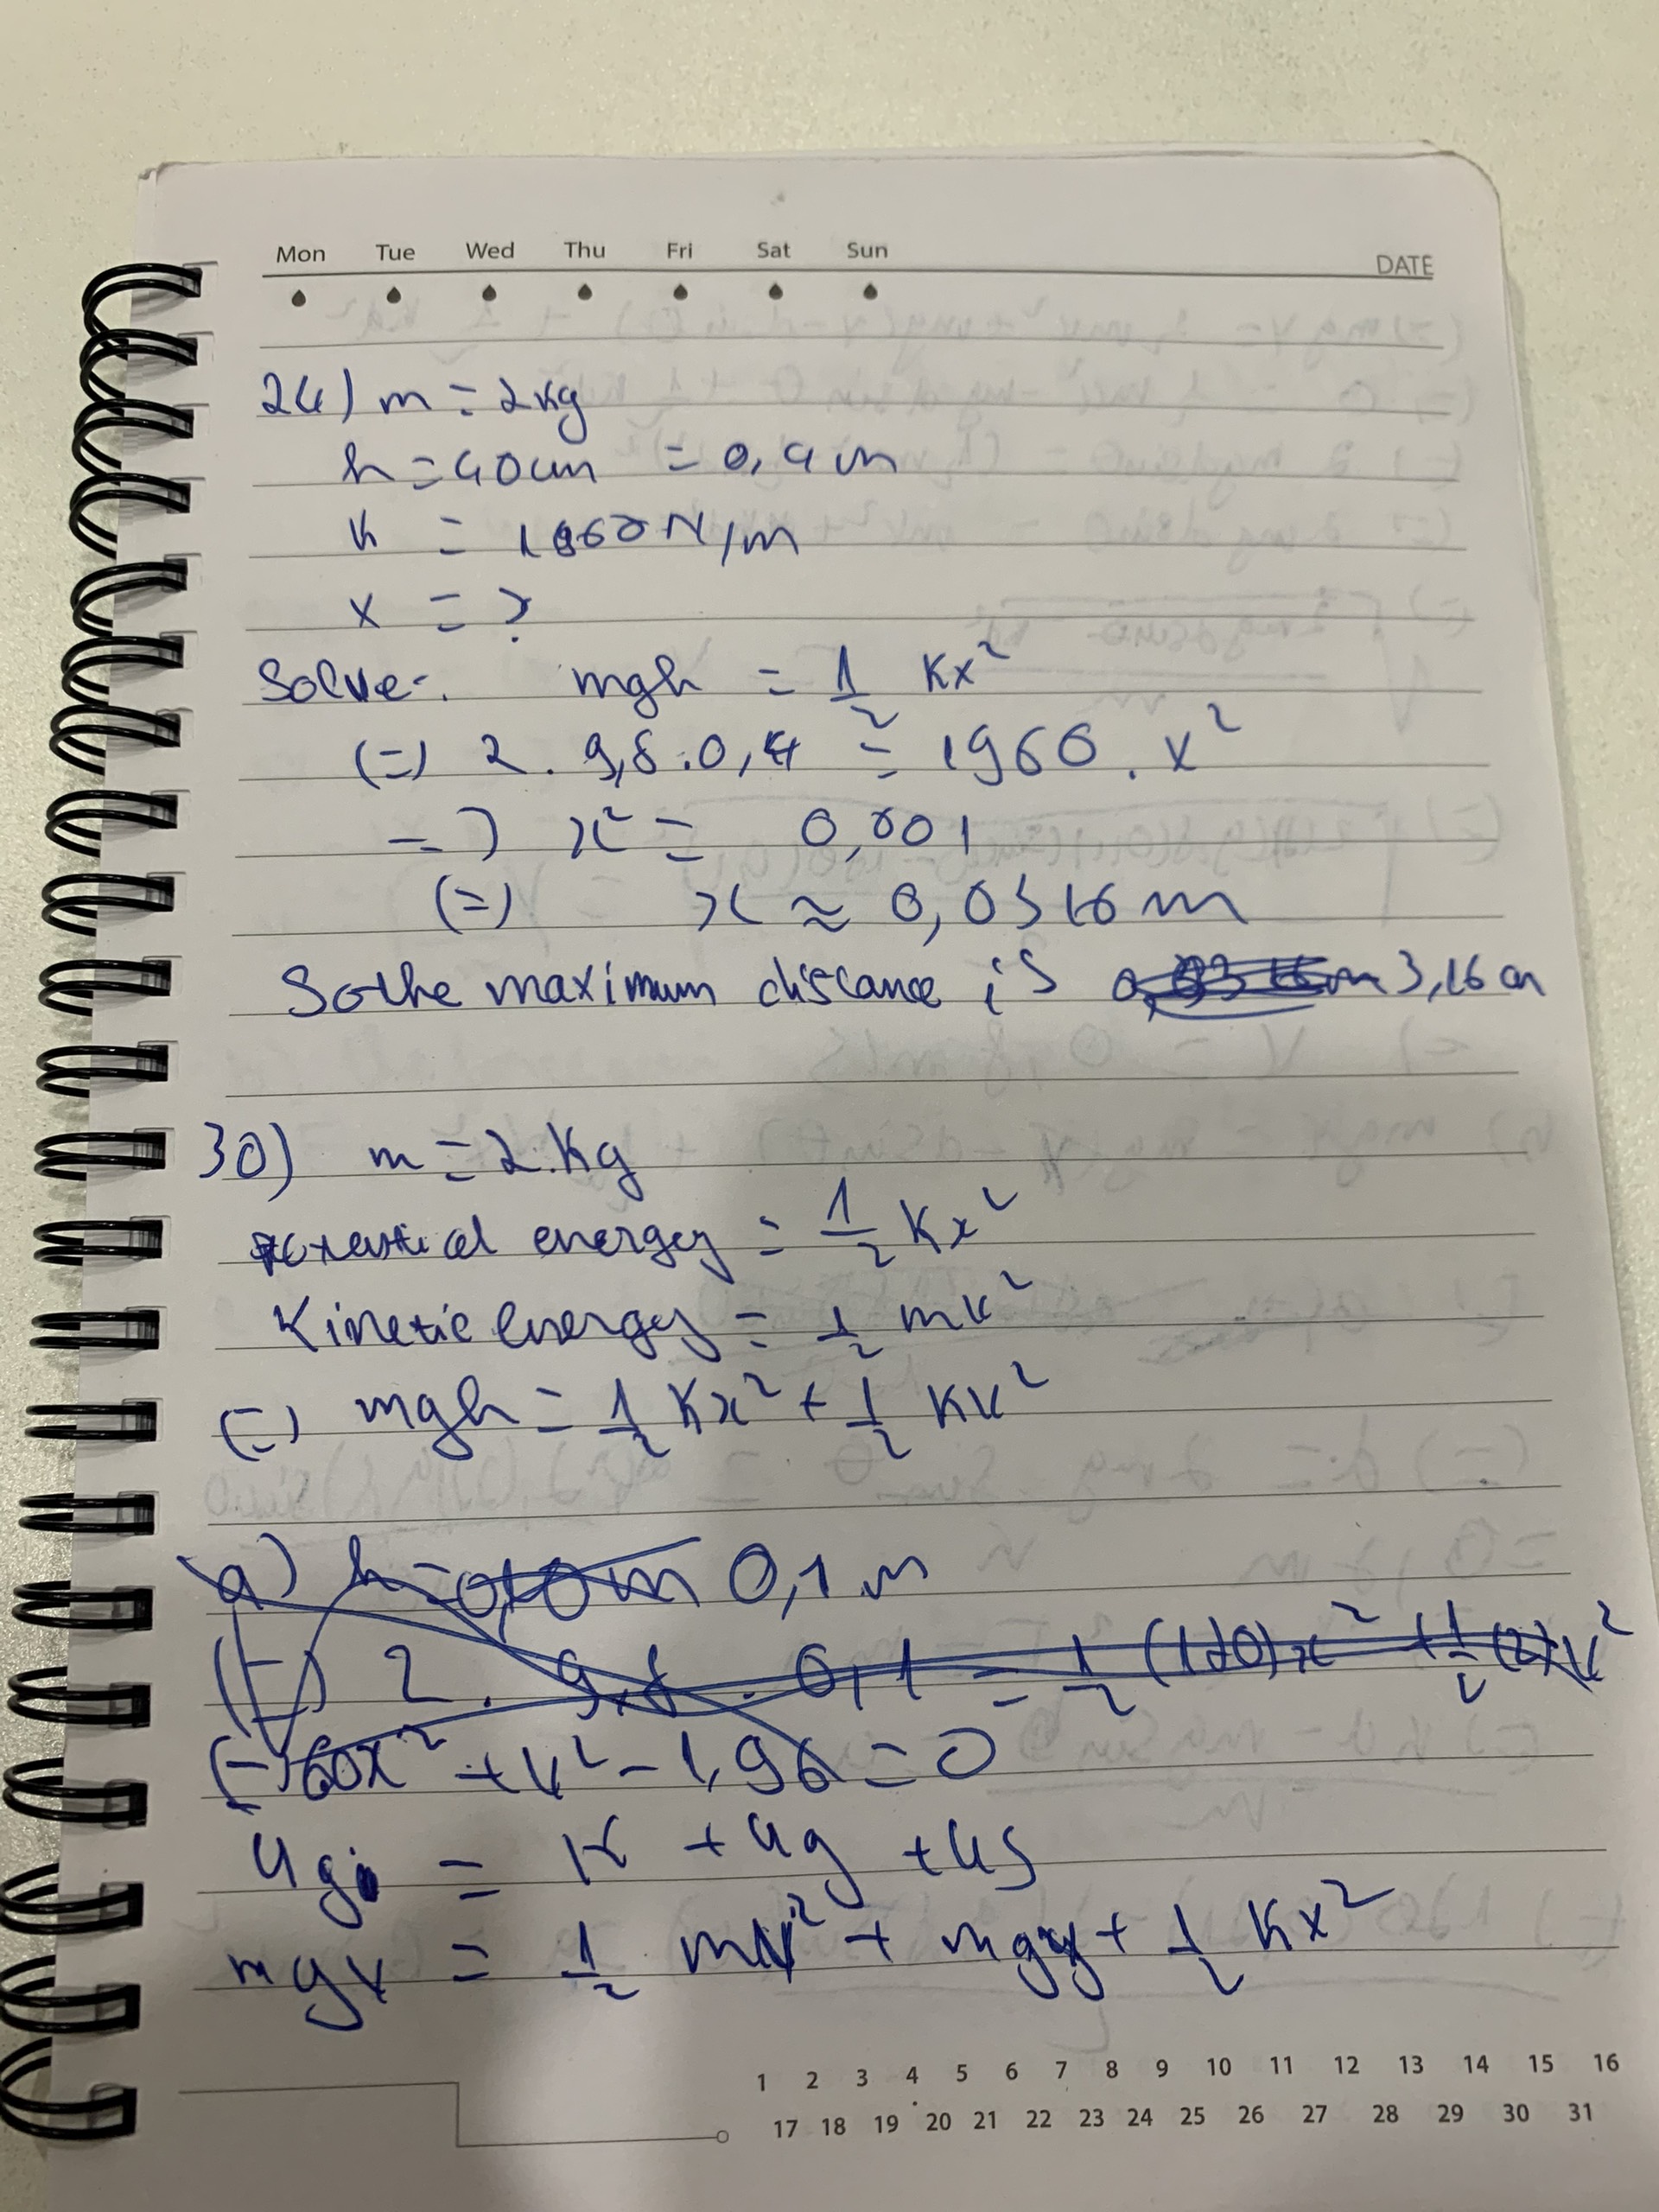 Mon Tue Wed Thu Fri Sat Sun DATE
24) m = 2kg
h = 40cm = 0,4m
k = 1960 N/m
x = ?
Solve: mgh = 1/2 Kx²
(=) 2 . 9,8 . 0,4 = 1960 . x²
=> x² = 0,001
(=) x ≈ 0,0316 m
So the maximum distance is 3,16 cm
30) m = 2.kg
potential energy = 1/2 Kx²
Kinetic energy = 1/2 mv²
(=) mgh = 1/2 Kx² + 1/2 Kv²
a) h = 0,10m 0,1m
(=) 2 . 9,8 . 0,1 = 1/2 (120)x² + 1/2 (2)v²
(=) 60x² + v² - 1,96 = 0
Ugi = K + Ug + Us
mgy = 1/2 mv² + mgy + 1/2 Kx²
1 2 3 4 5 6 7 8 9 10 11 12 13 14 15 16
17 18 19 20 21 22 23 24 25 26 27 28 29 30 31